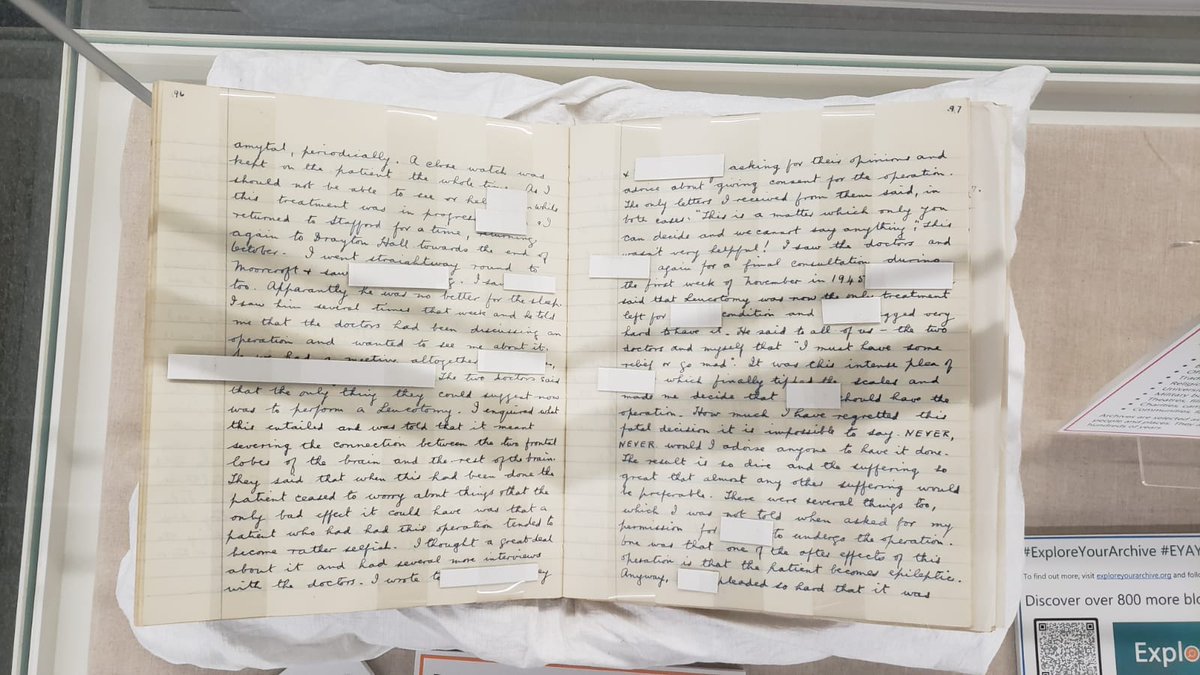 96
amytal, periodically. A close watch was
kept on the patient the whole time. As I
should not be able to see or hel whilst
this treatment was in progres & I
returned to Stafford for a time, returning
again to Drayton Hall towards the end of
October. I went straightway round to
Moorcroft & saw I sa
too. Apparantly he was no better for the sleep.
I saw him several times that week and he told
me that the doctors had been discussing an
operation and wanted to see me about it.
so we had a meeting altogether
The two doctors said
that the only thing they could suggest now
was to perform a leucotomy. I enquired what
this entailed and was told that it meant
severing the connection between the two frontal
lobes of the brain and the rest of the brain.
They said that when this had been done the
patient ceased to worry about things & that the
only bad effect it could have was that a
patient who had had this operation tended to
become rather selfish. I thought a great deal
about it and had several more interviews
with the doctors. I wrote to
97
& asking for their opinions and
advice about giving consent for the operation.
The only letters I received from them said, in
both cases: "This is a matter which only you
can decide and we cannot say anything"; this
wasn't very helpful! I saw the doctors and
again for a final consultation during
the first week of November in 1945
said that leucotomy was now the only treatment
left for condition and gged very
hard to have it. He said to all of us – the two
doctors and myself that "I must have some
relief or go mad." It was this intense plea of
which finally tipped the scales and
made me decide that should have the
operation. How much I have regretted this
fatal decision it is impossible to say. NEVER,
NEVER would I advise anyone to have it done.
The result is so dire and the suffering so
great that almost any other suffering would
be preferable. There were several things too,
which I was not told when asked for my
permission for to undergo the operation.
One was that one of the after effects of this
operation is that the patient becomes epileptic.
Anyway, pleaded so hard that it was
#ExploreYourArchive #EYA
To find out more, visit exploreyourarchive.org and follo
Discover over 800 more blo
Explo